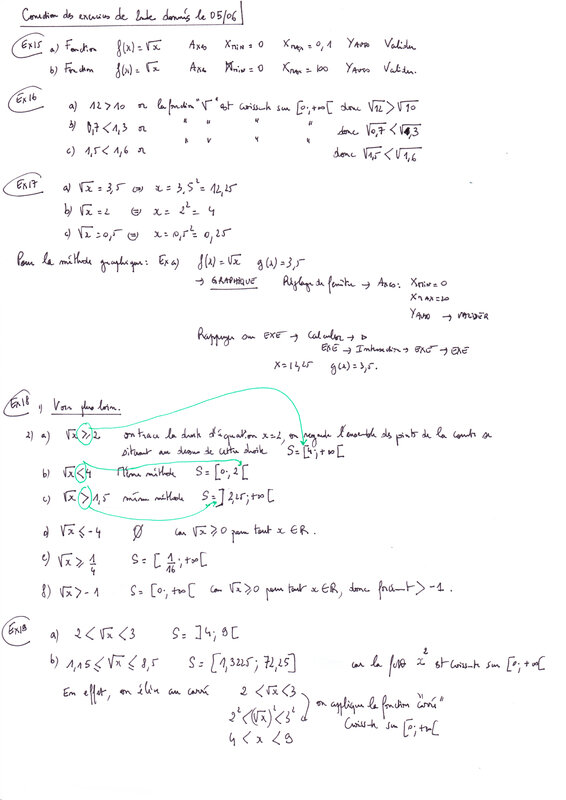 Correction des exercices de 2nde donnés le 05/06
Ex15 a) Fonction f(x)=√x Axes Xmin=0 Xmax=0,1 YAuto Valider
b) Fonction f(x)=√x Axes Xmin=0 Xmax=100 YAuto Valider.
Ex16
a) 12>10 or la fonction "√" est croissante sur [0;+∞[ donc √12>√10
b) 0,7<1,3 or " " " " donc √0,7<√1,3
c) 1,5<1,6 or " " " " donc √1,5<√1,6
Ex17 a) √x=3,5 ⇔ x=3,5²=12,25
b) √x=2 ⇔ x=2²=4
c) √x=0,5 ⇔ x=0,5²=0,25
Pour la méthode graphique: Ex a) f(x)=√x g(x)=3,5
→ GRAPHIQUE Réglage de fenêtre → Axes: Xmin=0
Xmax=20
YAuto → VALIDER
Rappuyer sur EXE → Calculer → ▷
EXE → Intersection → EXE → EXE
X=12,25 g(x)=3,5.
Ex18 1) Voir plus loin.
2) a) √x ⩾ 2 on trace la droite d'équation x=2, on regarde l'ensemble des points de la courbe se
situant au dessus de cette droite S=[4;+∞[
b) √x<4 Même méthode S=[0;2[
c) √x>1,5 même méthode S=]2,25;+∞[
d) √x⩽-4 ∅ car √x⩾0 pour tout x∈R.
e) √x⩾1/4 S=[1/16;+∞[
f) √x>-1 S=[0;+∞[ car √x⩾0 pour tout x∈R, donc forcément >-1.
Ex19
a) 2<√x<3 S=]4;9[
b) 1,15⩽√x⩽8,5 S=[1,3225;72,25] car la x² est croissante sur [0;+∞[
En effet, on élève au carré 2<√x<3
on applique la fonction "carré"
2²<(√x)²<3²
croissante sur [0;+∞[
4<x<9